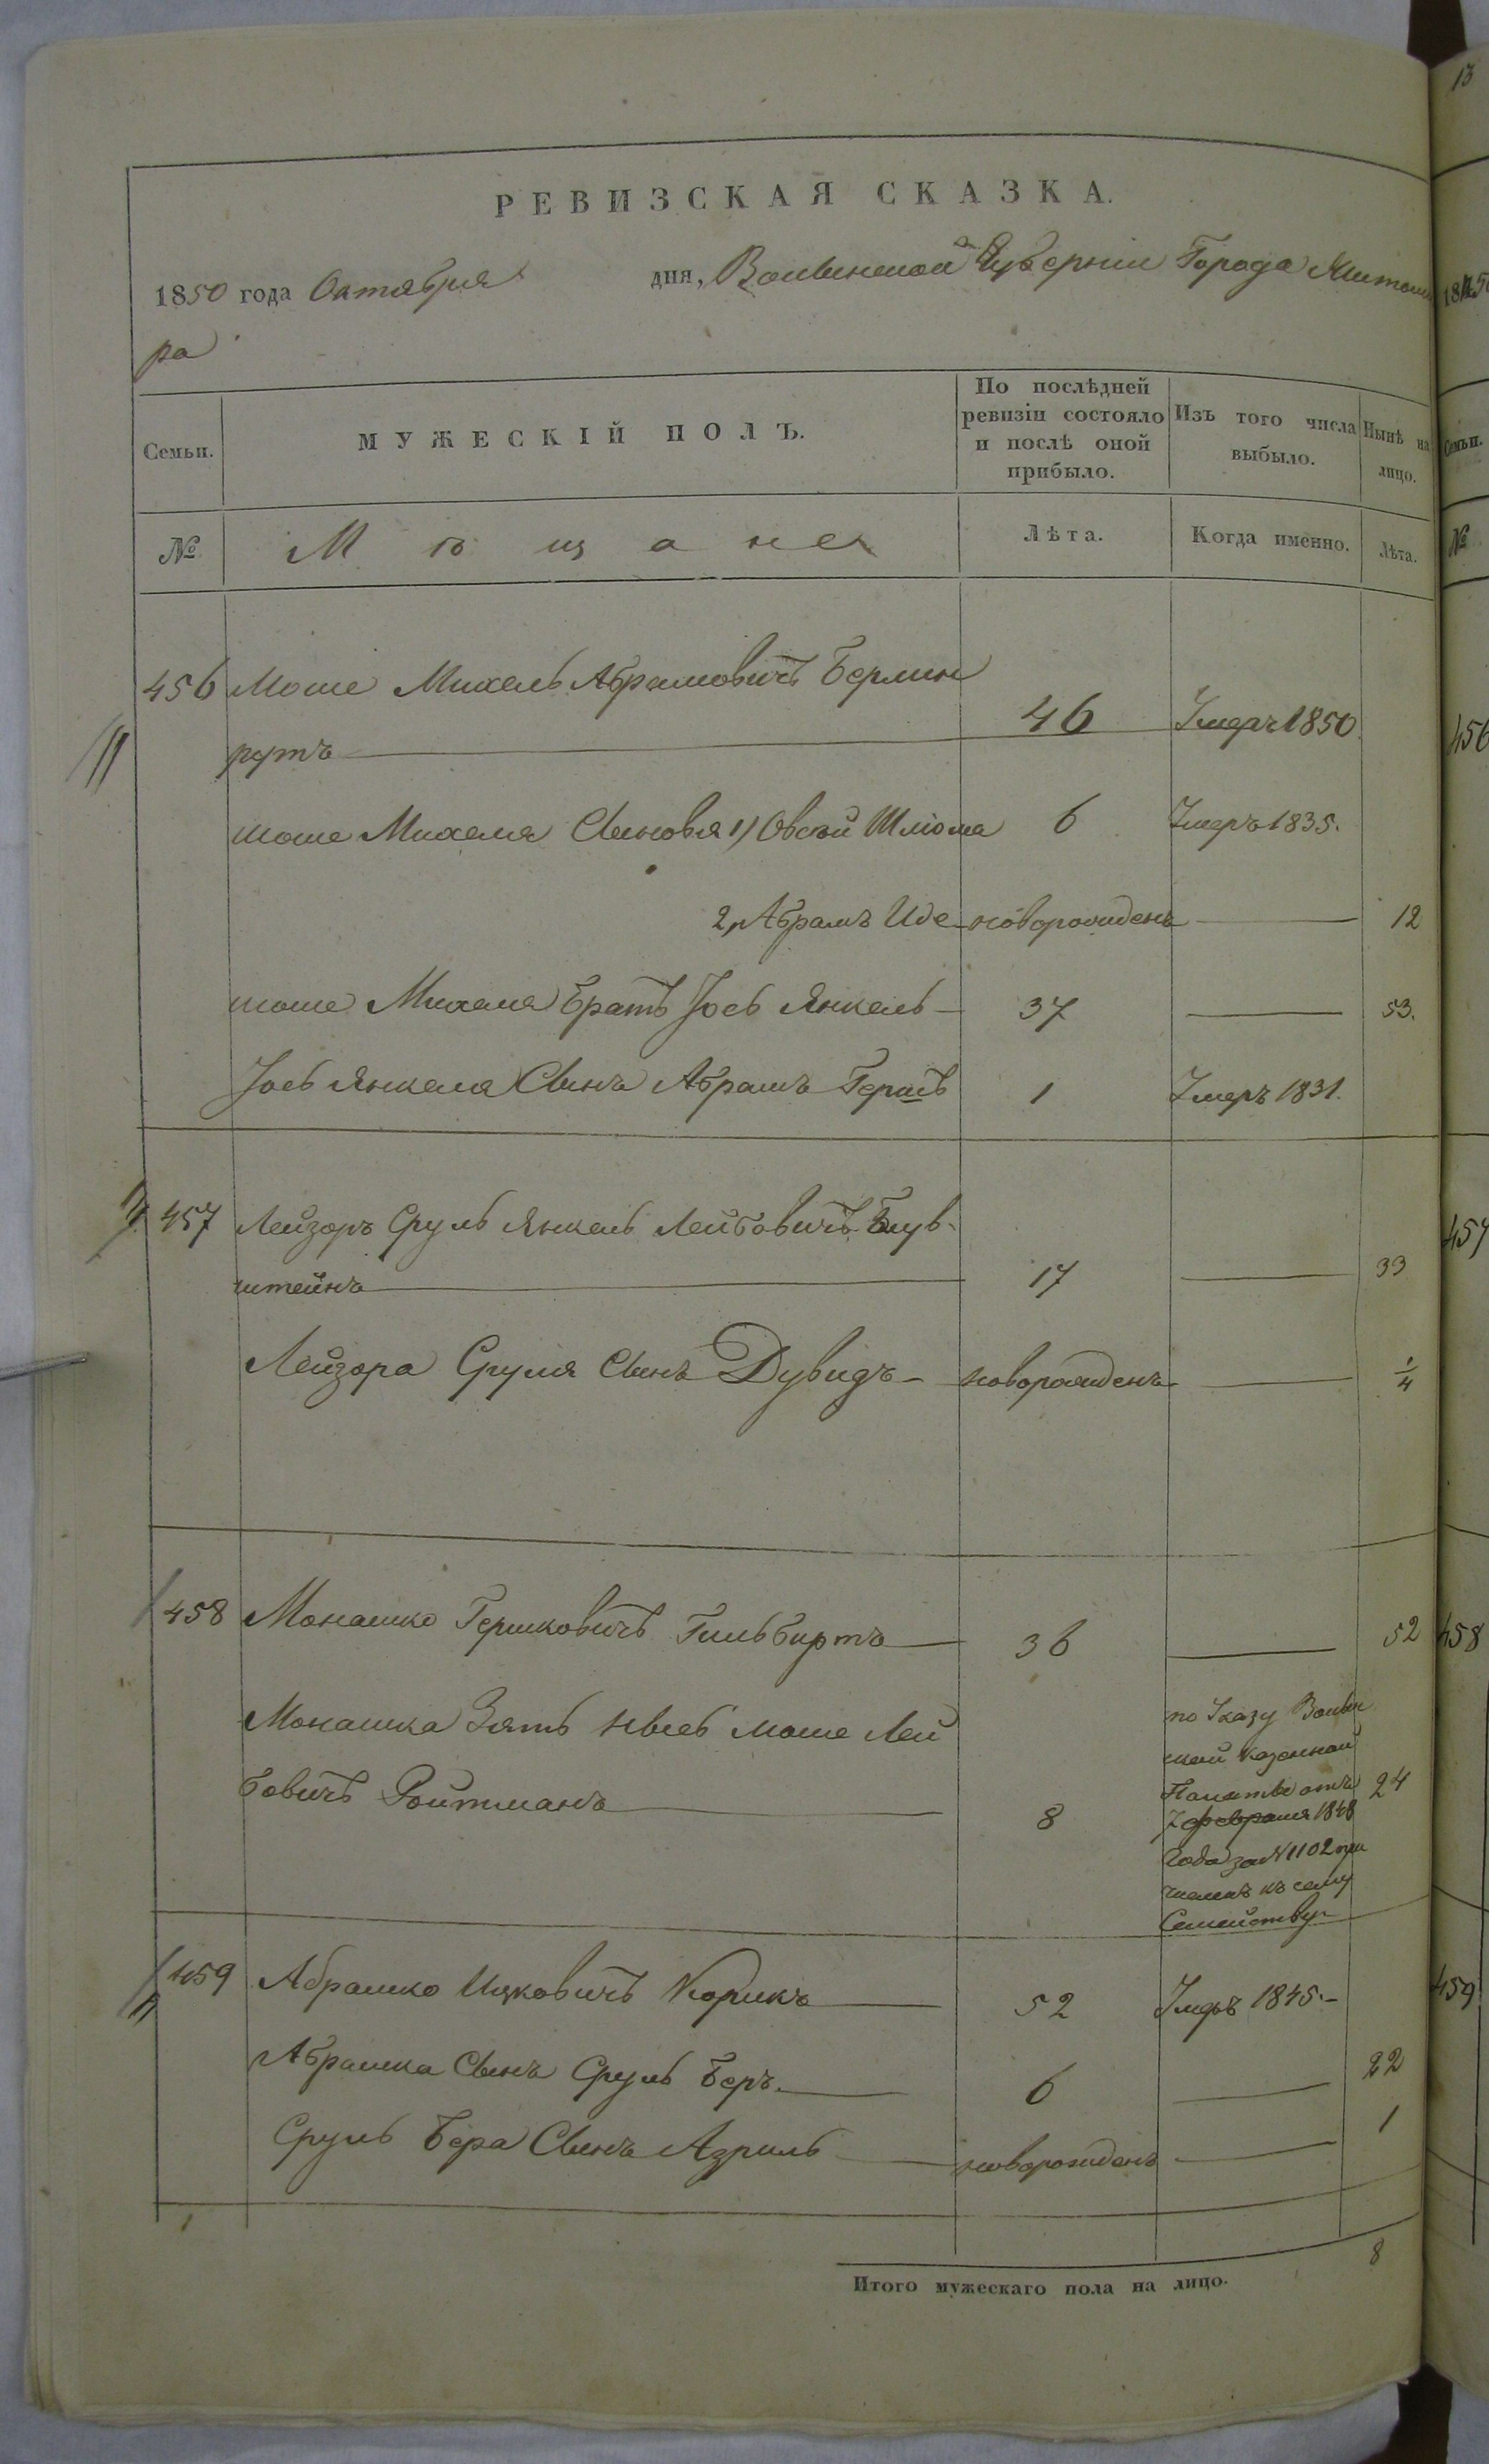 РЕВИЗСКАЯ СКАЗКА.
1850 года Октября дня, Волынской Губерніи Города Житоми
ра
Семьи. МУЖЕСКІЙ ПОЛЪ. По послѣдней ревизіи состояло и послѣ оной прибыло. Изъ того числа выбыло. Нынѣ на лицо.
№ Мѣщане Лѣта. Когда именно. Лѣта.
456 Мошe Михель Абрамовичъ Берлин
рутъ 46 Умеръ 1850
Мошe Михеля Сыновья 1) Овсѣй Шліома 6 Умеръ 1835.
2, Абрамъ Иде новорожденъ 12
Мошe Михеля Братъ Іосъ Янкель 37 53.
Іосъ Янкеля Сынъ Абрамъ Гершъ 1 Умеръ 1831.
457 Лейзоръ Сруль Янкель Лейбовичъ Блув-
штейнъ 17 33
Лейзора Сруля Сынъ Дувидъ новорожденъ 1/4
458 Монашко Гершковичъ Гильбуртъ 36 52
Монашка Зять Мошe Лей
бовичъ Ройтманъ 8 24
по Указу Волын
ской Казенной
Палаты отъ
7 февраля 1848
Года за N 1102 при
численъ къ сему
Семейству
459 Абрашко Ицковичъ Корикъ 52 Умеръ 1845.
Абрашка Сынъ Сруль Беръ 6 22
Сруль Бера Сынъ Азриль новорожденъ 1
Итого мужескаго пола на лицо. 8
13
1850
Семьи.
№
456
457
458
459